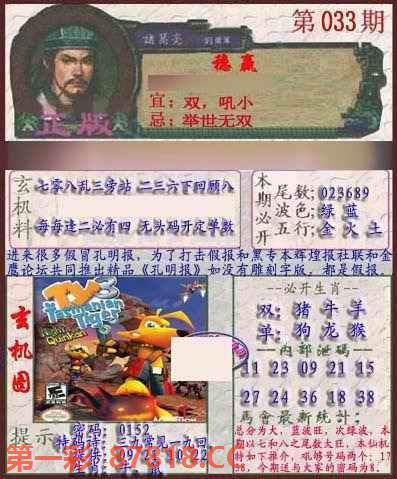 第033期
諸葛亮
德赢
宜：双，吼小
忌：举世无双
正版
玄机料
七零八乱三旁站 二三六下回顾八
每每逢二必有四 无头码开定单数
本期必开
尾数;023689
波色;绿 蓝
五行;金 火 土
进来很多假冒孔明报，为了打击假报和黑专本辉煌报社联和金
鹰论坛共同推出精品《孔明报》如没有雕刻字版，都是假报。
玄机图
TY3
Tasmanian
Tiger
Night
Quinkan
必开生肖
双:猪 牛 羊
单:狗 龙 猴
内部泄码
11 23 09 21 15
27 24 36 48 12
22 45 16 39 38
馬會最新統計:
总分为大，蓝波旺，次绿波，本
期以七和八之尾数大旺，本仙机
提示
密码: 0152
三九常见一九回
09 21 10 22
第一彩 87818.CC